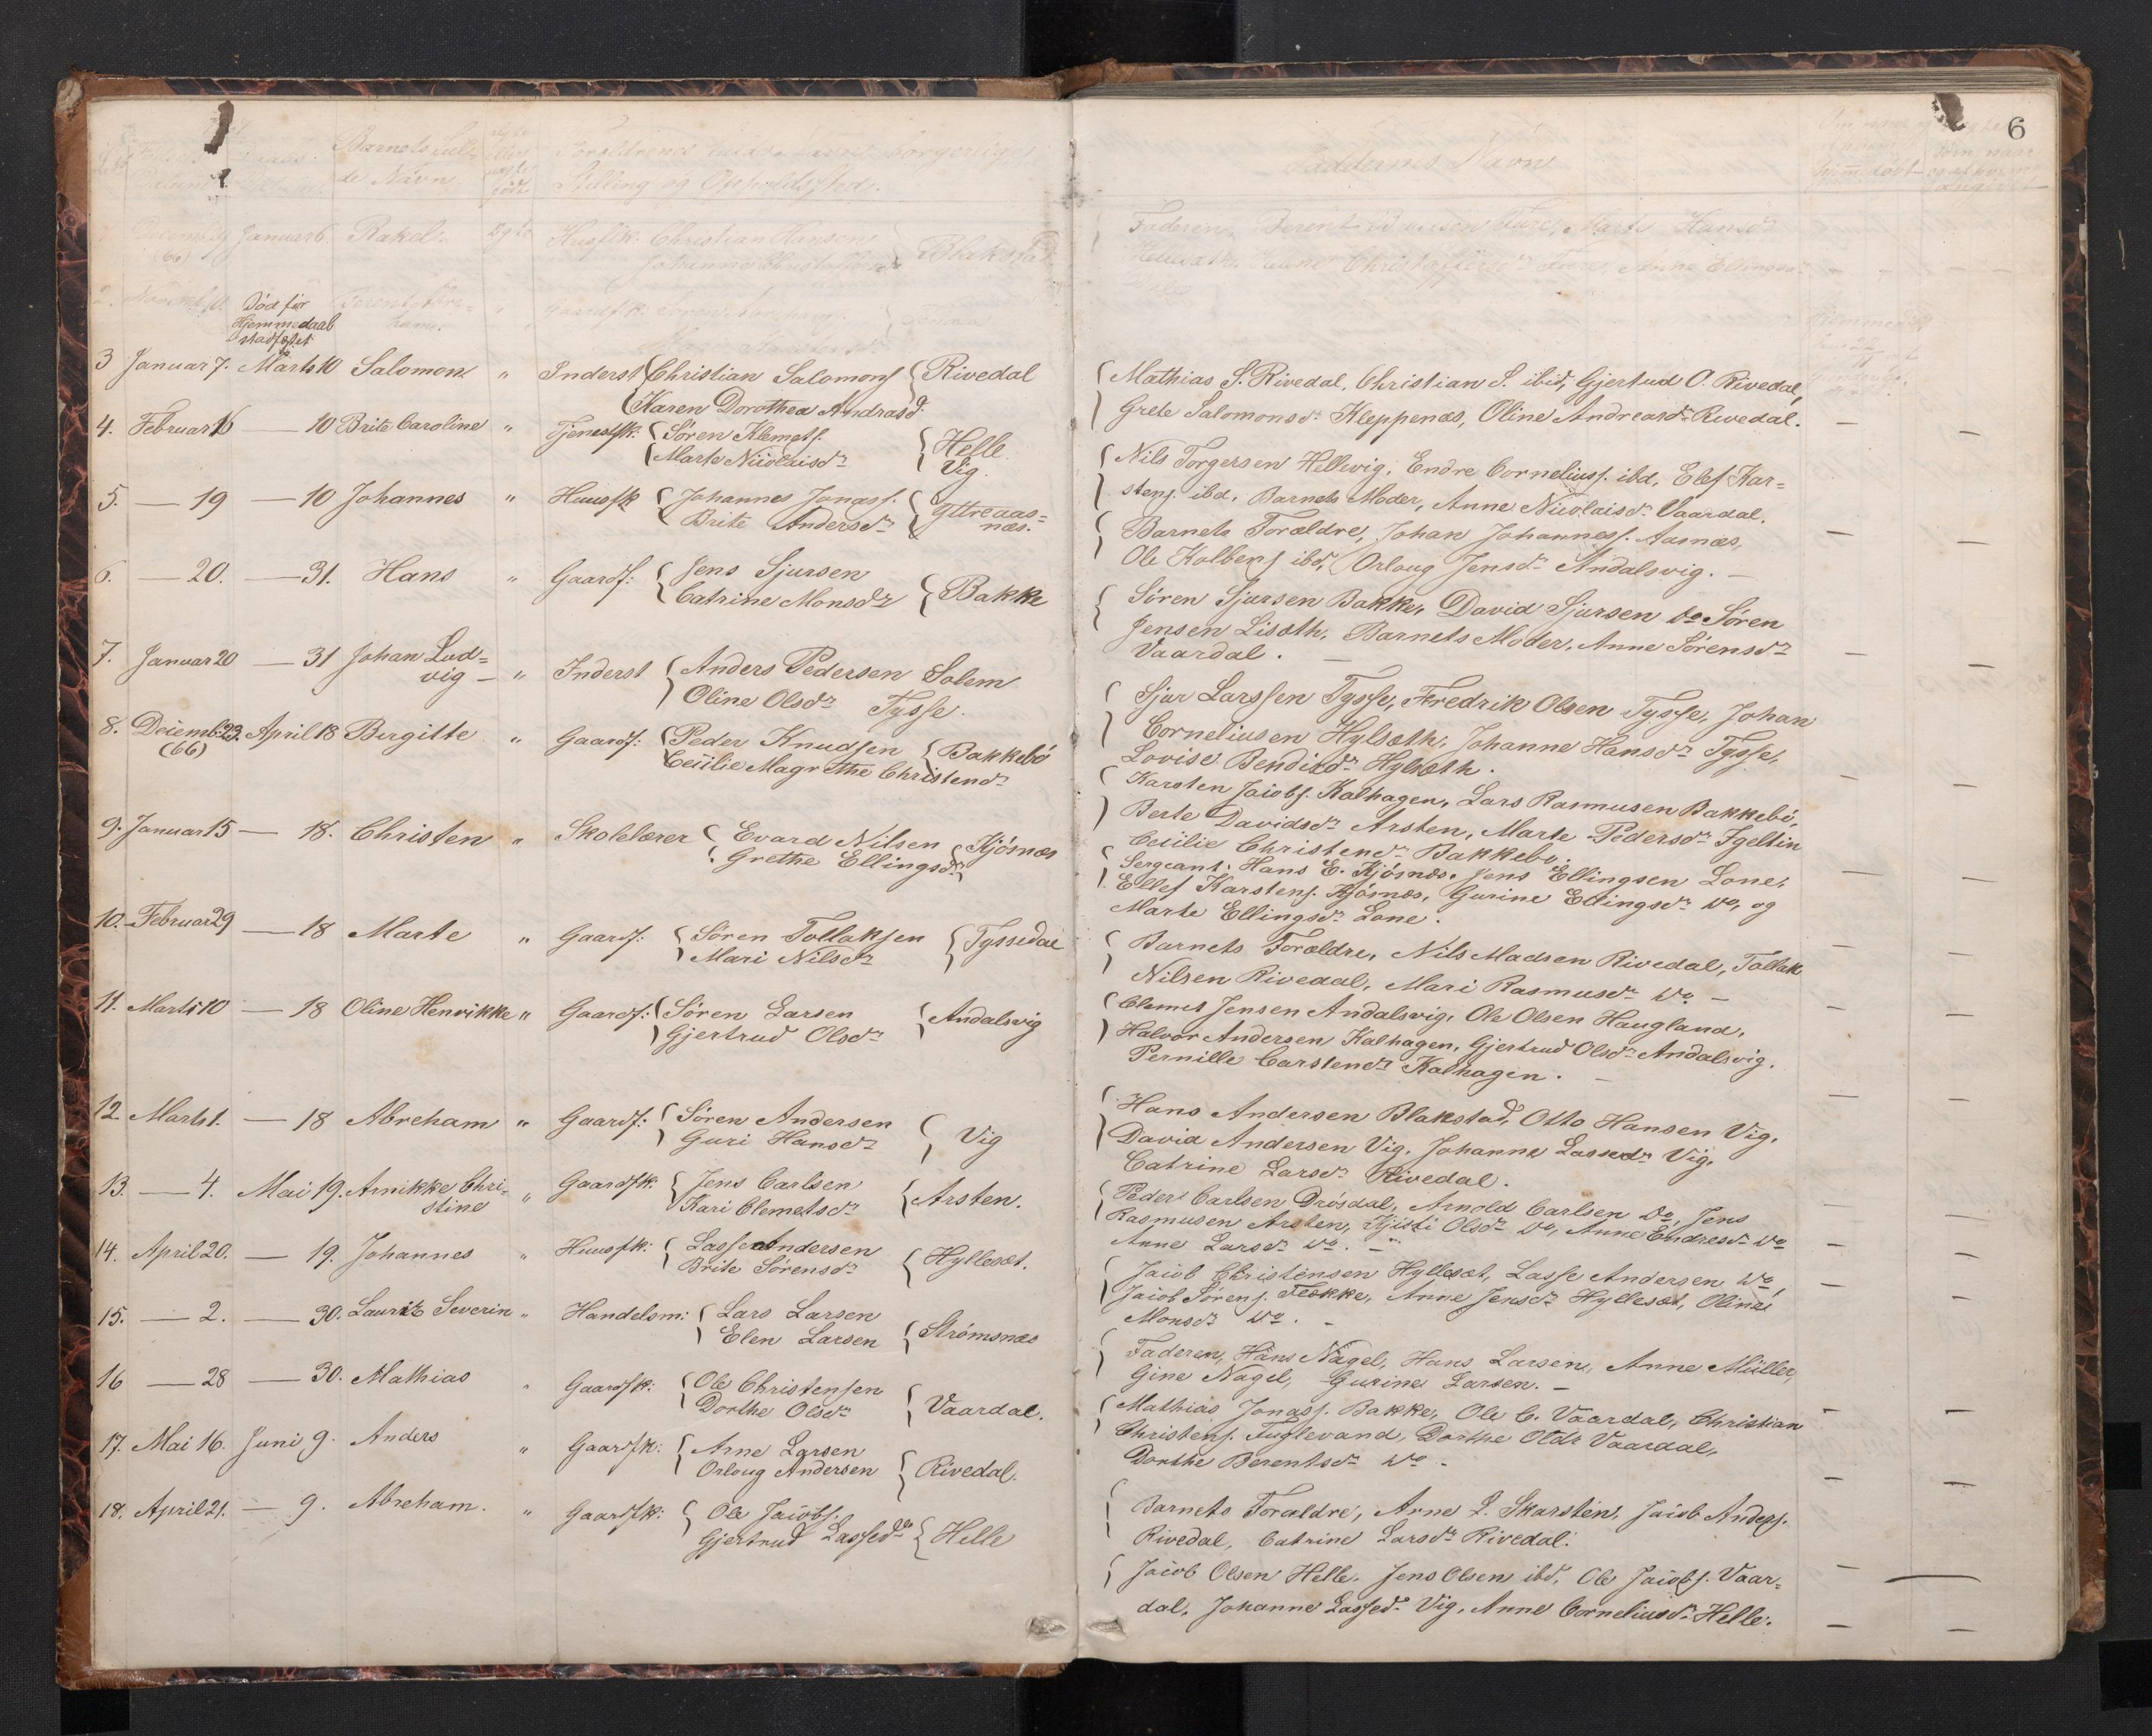 6
Barnets ful-
de Navn
Forældrenes
Stilling og Opholdssted.
Faddernes Navne
Januar 6. Rakel.
(66)
Huusfk. Christian Hansen
Blakstad
Faderen, Berent
Død før
Hjemmedaab
stadfæstet
3 Januar 7. Marts 10 Salomon " Inderst { Christian Salomons { Rivedal
Karen Dorothea Andrasd.
{ Mathias S. Rivedal, Christian S. ibid, Gjertrud O. Rivedal,
Grete Salomonsdr Kleppenæs, Oline Andreasdr Rivedal. — —
4. Februar 16 — 10 Brite Caroline " Tjenestfk. { Søren Klemets. { Helle
Marte Nicolaisdr Vig.
{ Nils Torgersen Hellevig, Endre Corneliuss. ibd, Elef Kar=
stens. ibd, Barnets Moder, Anne Nicolaisdr Vaardal. — —
5. — 19 — 10 Johannes " Huusfk { Johannes Jonass. { Yttreaas=
Brite Andersdr næs.
{ Barnets Forældre, Johan Johanness. Aasnæs,
Ole Kolbens. ibd, Orloug Jensdr Andalsvig. —
6. — 20. — 31. Hans " Gaardf: { Jens Sjursen
Catrine Monsdr { Bakke
{ Søren Sjursen Bakke, David Sjursen do Søren
Jensen Lisæth, Barnets Moder, Anne Sørensdr
Vaardal. — — —
7. Januar 20 — 31 Johan Lud=
vig — " Inderst { Anders Pedersen Solem
Oline Olsdr Tysse.
{ Sjur Larssen Tysse, Fredrik Olsen Tysse, Johan
Corneliusen Hylsæth, Johanne Hansdr Tysse,
Lovise Bendixdr Hylsæth. — —
8. Decemb: 23. April 18 Birgitte " Gaardf: { Peder Knudsen { Bakkebö
(66) Cecilie Magrethe Christendr
{ Karsten Jacobs. Kalhagen, Lars Rasmusen Bakkebö,
Berte Davidsdr Arsten, Marte Pedersdr Igeltin
Cecilie Christendr Bakkebø. — —
9. Januar 15 — 18. Christen " Skolelærer { Evard Nilsen { Kjösnæs
Grethe Ellingsdr
{ Sergeant Hans E. Kjösnæs, Jens Ellingsen Lone,
Ellef Karstens. Kjösnæs, Gurine Ellingsdr do, og
Marte Ellingsdr Lone. — —
10. Februar 29 — 18 Marte " Gaardf: { Søren Tollaksen { Tyssedal
Mari Nilsdr
{ Barnets Forældre, Nils Madsen Rivedal, Tollak
Nilsen Rivedal, Mari Rasmusdr do — — —
11. Marts 10 — 18 Oline Henrikke " Gaardf: { Søren Larsen { Andalsvig
Gjertrud Olsdr
{ Clemet Jensen Andalsvig, Ole Olsen Haugland,
Halvor Andersen Kalhagen, Gjertrud Olsdr Andalsvig.
Pernille Carstendr Kalhagen. — — —
12 Marts 1. — 18 Abreham " Gaardf: { Søren Andersen
Guri Hansdr { Vig
{ Hans Andersen Blakstad, Otto Hansen Vig,
David Andersen Vig, Johanne Lassedr Vig,
Catrine Larsdr Rivedal. — —
13. — 4. Mai 19. Annikke Chri-
stine " Gaardfk. { Jens Carlsen
Kari Clemetsdr { Arsten.
{ Peder Carlsen Drösdal, Arnold Carlsen do, Jens
Rasmusen Arsten, Olsdr do, Anne Endresdr do
Anne Larsdr do. — — —
14. April 20. — 19. Johannes " Huusfk: { Lasse Andersen
Brite Sørensdr { Hyllesæt.
{ Jacob Christensen Hyllesæt, Lasse Andersen do,
Jacob Sørens. Flökke, Anne Jensdr Hyllesæt, Oline
Monsdr do. — — —
15. — 2. — 30. Lauritz Severin " Handelsm: { Lars Larsen
Elen Larsen { Strömsnæs
{ Faderen, Hans Nagel, Hans Larsen, Anne Müller,
Gine Nagel, Gurine Larsen. —
16 — 28 — 30. Mathias " Gaardfk: { Ole Christensen
Dorthe Olsdr { Vaardal.
{ Mathias Jonass. Bakke, Ole C. Vaardal, Christian
Christens. Fuglevand, Dorthe Olsdr Vaardal,
Dorthe Berentsdr do — — —
17. Mai 16. Juni 9. Anders " Gaardfk: { Arne Larsen
Orloug Andersen { Rivedal.
{ Barnets Forældre, Arne L. Skarsten, Jacob Anders.
Rivedal, Catrine Larsdr Rivedal. — —
18. April 21. — 9. Abreham. " Gaardfk: { Ole Jacobs.
Gjertrud Lassedr { Helle
{ Jacob Olsen Helle, Jens Olsen ibd, Ole Jacobs. Vaar=
dal, Johanne Lassedr Vig, Anne Corneliusdr Helle. — —